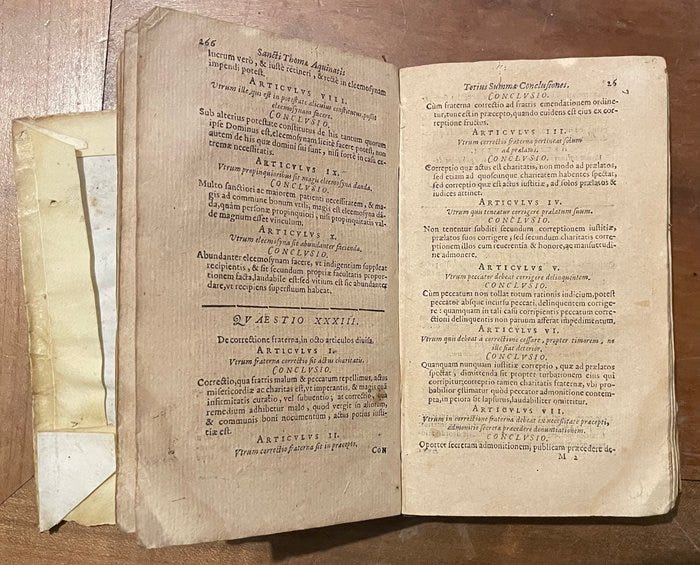 266
Sancti Thomæ Aquinatis
lucrum verò, & iustè retineri, & rectè in eleemosynam
impendi potest.
ARTICVLVS VIII.
Vtrum ille, qui est in potestate alicuius constitutus, possit
eleemosynam facere.
CONCLVSIO.
Sub alterius potestate constitutus de his tantum quorum
ipse Dominus est, eleemosynam licitè facere potest, non
autem de his quæ domini sui sunt, nisi fortè in casu ex-
tremæ necessitatis.
ARTICVLVS IX.
Vtrum propinquioribus sit magis eleemosyna danda.
CONCLVSIO.
Multo sanctiori ac maiorem patienti necessitatem, & ma
gis ad commune bonum vtili, magis est eleemosyna dā-
da, quàm personæ propinquiori, nisi propinquitatis val-
de magnum esset vinculum.
ARTICVLVS X.
Vtrum eleemosyna sit abundanter facienda.
CONCLVSIO.
Abundanter eleemosynam facere, vt indigentiam suppleat
recipientis, & sit secundum propriæ facultatis propor-
tionem facta, laudabile est: sed vitium est sic abundanter
dare, vt recipiens superfluum habeat.
QVAESTIO XXXIII.
De correctione fraterna, in octo articulos diuisa.
ARTICVLVS I.
Vtrum fraterna correctio sit actus charitatis.
CONCLVSIO.
Correctio, qua fratris malum & peccatum repellimus, actus
misericordiæ ac charitatis est, vt imperantis, & magis quā
infirmitatis curatio, vel subuentio; at correctio,
remedium adhibetur malo, quod vergit in aliorum,
& communis boni nocumentum, actus potius iusti-
tiæ est.
ARTICVLVS II.
Vtrum correctio fraterna sit in præcepto.
CON
Tertius Summæ Conclusiones. 26
CONCLVSIO.
Cùm fraterna correctio ad fratris emendationem ordine-
tur, tunc est in præcepto, quando euidens est eius ex cor-
reptione fructus.
ARTICVLVS III.
Vtrum correctio fraterna pertineat solum
ad prælatos.
CONCLVSIO.
Correptio quæ actus est charitatis, non modò ad prælatos,
sed etiam ad quoscunque charitatem habentes spectat,
sed correptio quæ est actus iustitiæ, ad solos prælatos &
iudices attinet.
ARTICVLVS IV.
Vtrum quis teneatur corrigere prælatum suum.
CONCLVSIO.
Non tenentur subditi secundum correptionem iustitiæ,
prælatos suos corrigere, sed secundum charitatis corre-
ptionem illos cum reuerentia & honore, ac mansuetudi-
ne admonere.
ARTICVLVS V.
Vtrum peccator debeat corrigere delinquentem.
CONCLVSIO.
Cùm peccatum non tollat totum rationis iudicium, potest
peccator absque incursu peccati, delinquentem corrige-
re: quamquam in tali casu corripientis peccatum corre-
ctioni delinquentis non paruum afferat impedimentum.
ARTICVLVS VI.
Vtrum quis debeat à correctione cessare, propter timorem, ne
ille fiat deterior.
CONCLVSIO.
Quanquam nunquam iustitiæ correptio, quæ ad prælatos
spectat, dimittenda sit propter turbationem eius qui
corripitur; correptio tamen charitatis fraternæ, vbi pro-
babiliter æstimatur quòd peccator admonitione contem-
pta, in peiora sit lapsurus, laudabiliter omittitur.
ARTICVLVS VII.
Vtrum in correctione fraterna debeat ex necessitate præcepti,
admonitio secreta præcedere denuntiationem.
CONCLVSIO.
Oportet secretam admonitionem, publicam præcedere de-
M 2